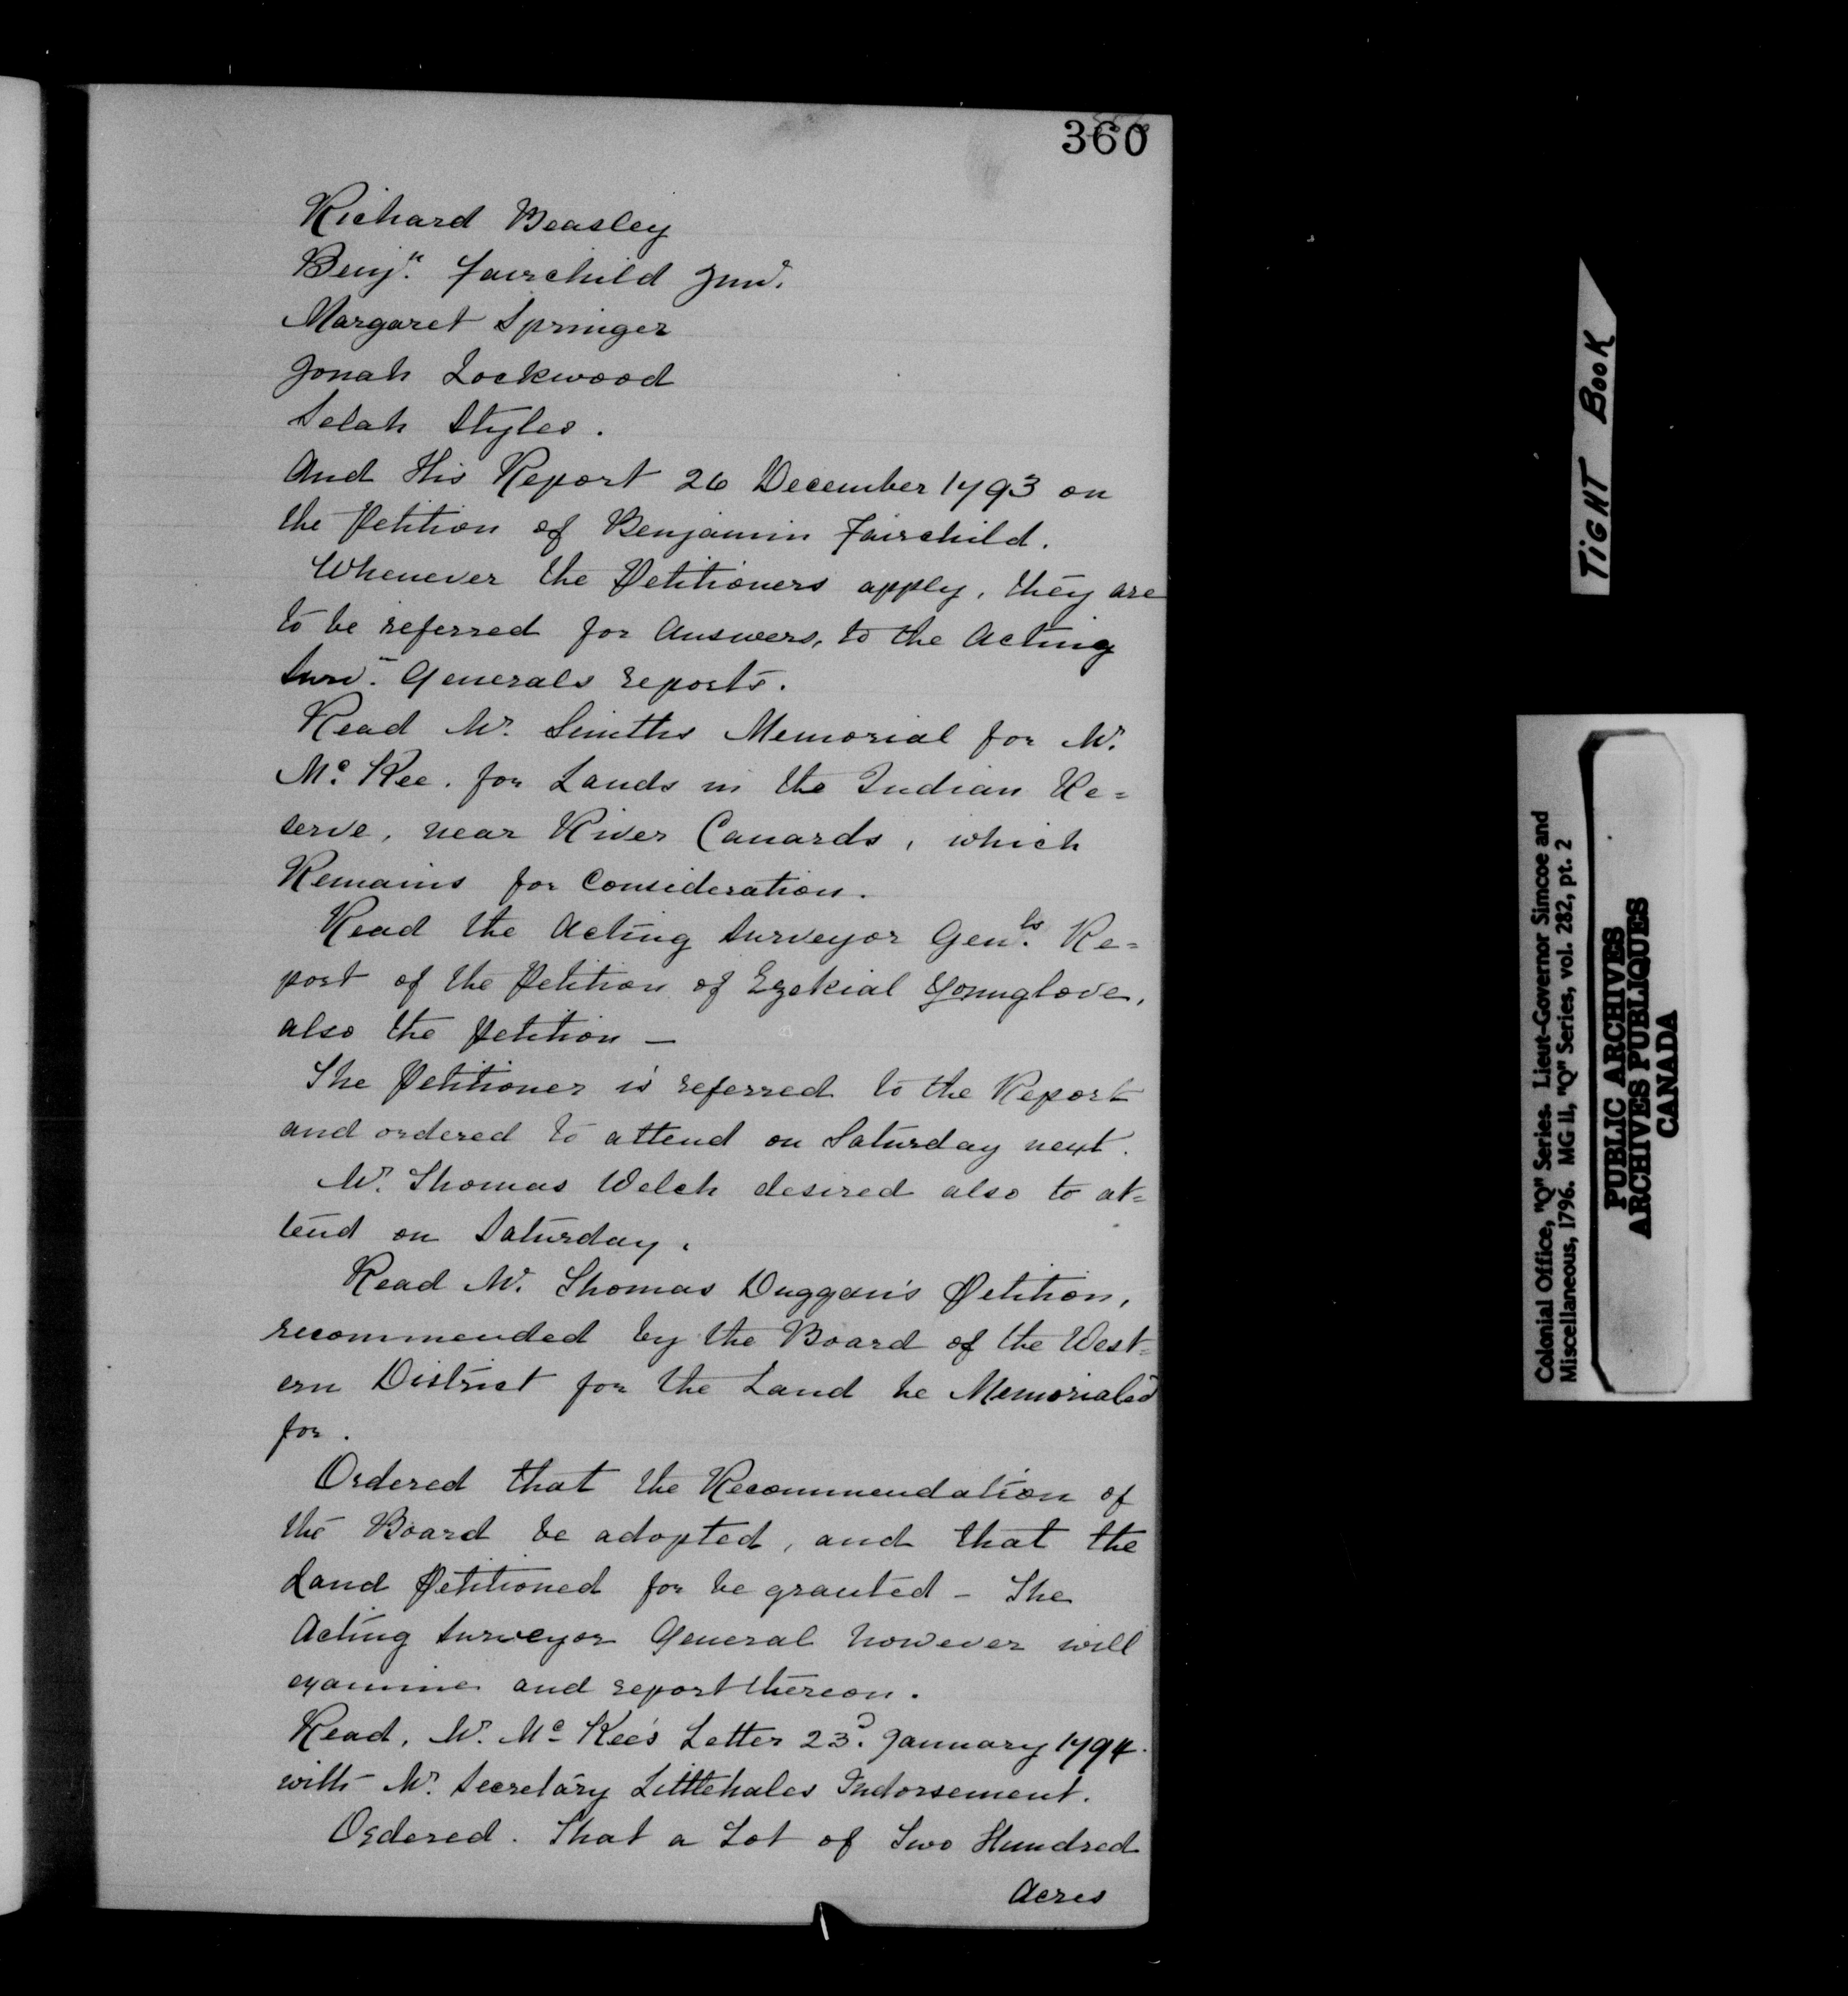 360
Richard Beasley
Benjn. Fairchild Junr.
Margaret Springer
Jonah Lockwood
Selah Styles.
And His Report 26 December 1793 on
the Petition of Benjamin Fairchild.
Whenever the Petitioners apply, they are
to be referred for Answers, to the Acting
Surv. Generals reports.
Read Mr. Smiths Memorial for Mr.
Mc Kee. for Lands in the Indian Re=
serve, near River Canards, which
Remains for Consideration.
Read the Acting Surveyor Genls. Re=
port of the Petition of Ezekial Younglove,
also the Petition —
The Petitioner is referred to the Report
and ordered to attend on Saturday next.
Mr. Thomas Welch desired also to at=
tend on Saturday.
Read Mr. Thomas Duggan's Petition,
recommended by the Board of the West=
ern District for the Land he Memorialed
for.
Ordered that the Recommendation of
the Board be adopted, and that the
Land Petitioned for be granted - The
Acting Surveyor General however will
examine and report thereon.
Read, Mr. Mc Kee's Letter 23d. January 1794.
with Mr. Secretary Littlehales Indorsement.
Ordered. That a Lot of Two Hundred
Acres
TIGHT BOOK
Colonial Office, "Q" Series. Lieut-Governor Simcoe and
Miscellaneous, 1796. MG 11, "Q" Series, vol. 282, pt. 2
PUBLIC ARCHIVES
ARCHIVES PUBLIQUES
CANADA